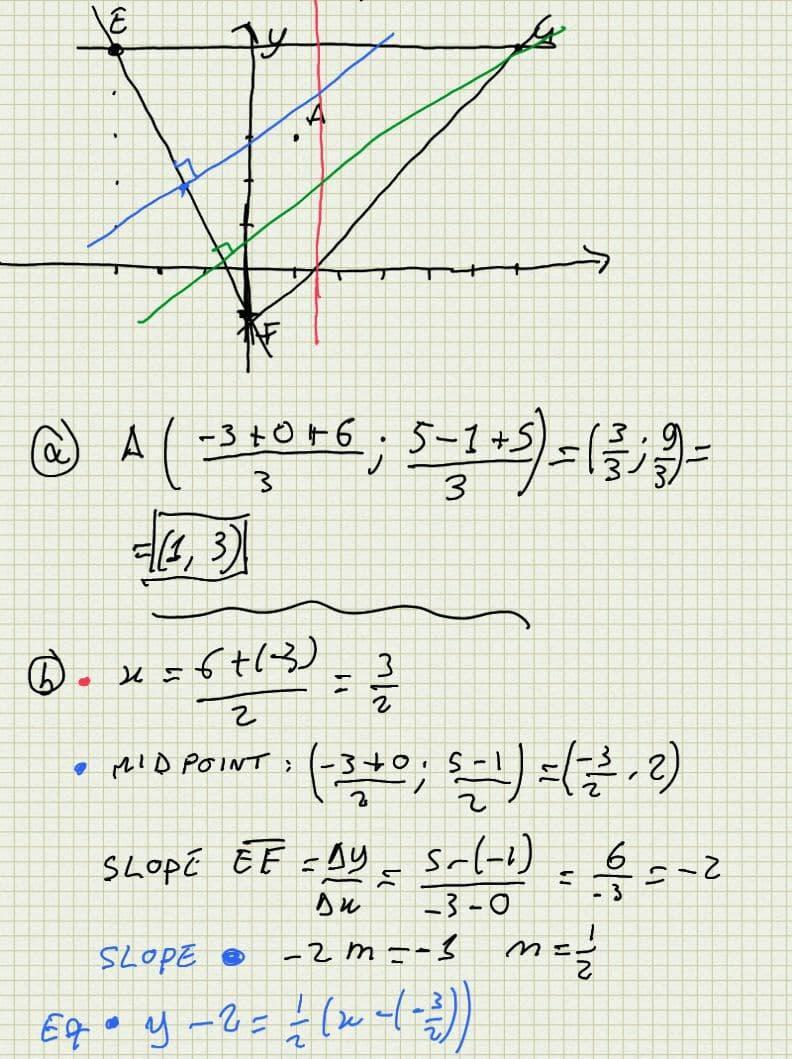 E
y
G
A
F
(a) A ( (-3+0+6)/3 ; (5-1+5)/3 ) = (3/3 ; 9/3) =
= (1, 3)
(b) • x = (6+(-3))/2 = 3/2
• MIDPOINT : ( (-3+0)/2 ; (5-1)/2 ) = (-3/2 , 2)
SLOPE EF = Δy/Δx = (5-(-1))/(-3-0) = 6/-3 = -2
SLOPE • -2 m = -1 m = 1/2
Eq • y - 2 = 1/2 (x - (-3/2))